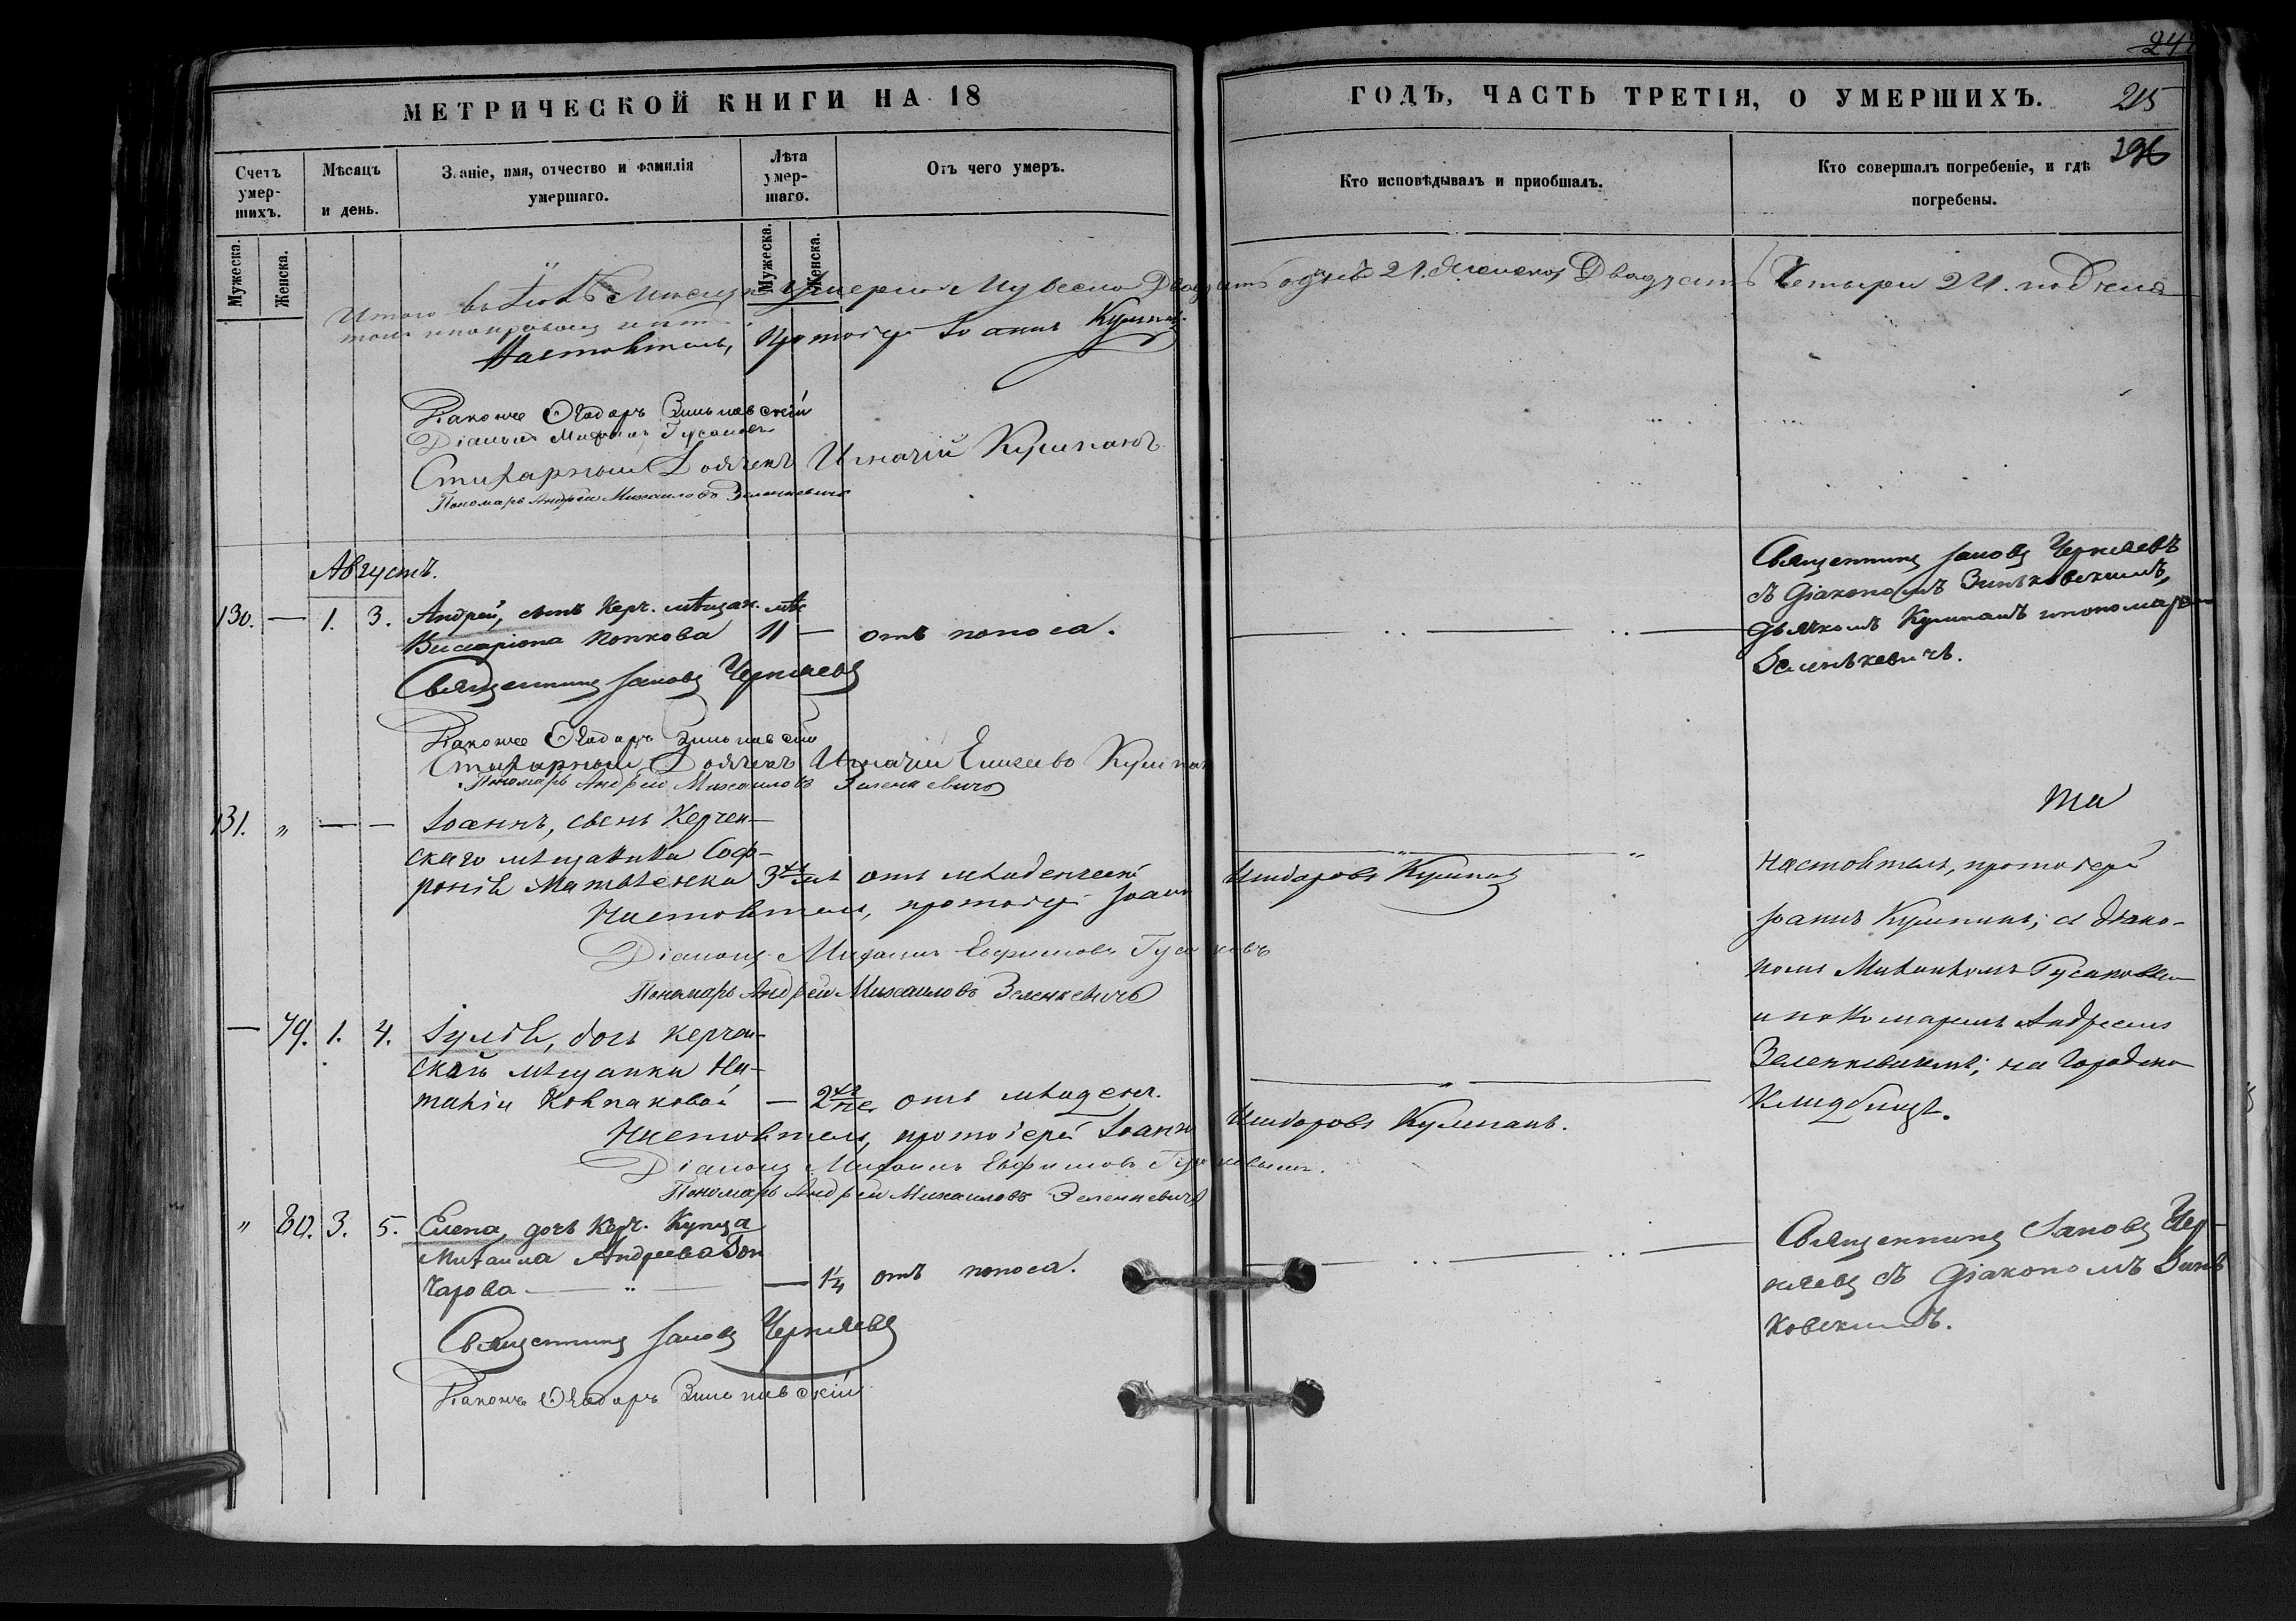 МЕТРИЧЕСКОЙ КНИГИ НА 18
Счетъ умер-шихъ.
Мѣсяцъ и день.
Званіе, имя, отчество и фамилія умершаго.
Лѣта умер-шаго.
Отъ чего умеръ.
Мужеска.
Женска.
Мужеска.
Женска.
Итого въ Іюлѣ Мѣсяцѣ умерло Мужеска Двадцать одинъ 21. Женска Двадцать Четыре 24.
Настоятель, Протоіерей Іоаннъ Кумпанъ
Діаконъ Ѳеодоръ Зиньковскій
Діаконъ Митрофанъ Гусаковъ
Стихарный Дьячекъ Игнатій Кумпанъ
Пономарь Андрей Михаиловъ Зеленкевичъ
Августъ.
130. — 1. 3. Андрей, сынъ Керч. мѣщан. мѣс
Виссаріона Попкова 11 — отъ поноса.
Священникъ Іаковъ Черняевъ
Діаконъ Ѳеодоръ Зиньковскій
Стихарный Дьячекъ Игнатій Елисеевъ Кумпан
Пономарь Андрей Михаиловъ Зеленкевичъ
131. „ — — Іоаннъ, сынъ Керчен-
скаго мѣщанина Соф-
ронія Матвѣенка 3 отъ младенческой
Настоятель, протоіерей Іоаннъ Исидоровъ Кумпанъ
Діаконъ Митрофанъ Евфимовъ Гусаковъ
Пономарь Андрей Михаиловъ Зеленкевичъ
— 79. 1. 4. Іулія, дочь Керчен-
ской мѣщанки На-
таліи Колпаковой — 2 отъ младенч.
Настоятель, протоіерей Іоаннъ Исидоровъ Кумпанъ.
Діаконъ Митрофанъ Евфимовъ Гусаковъ.
Пономарь Андрей Михаиловъ Зеленкевичъ
„ 80. 3. 5. Елена, дочь Керч. Купца
Михаила Андреева Гон
чарова — „ — — 1¼ отъ поноса.
Священникъ Іаковъ Черняевъ
Діаконъ Ѳеодоръ Зиньковскій
ГОДЪ, ЧАСТЬ ТРЕТІЯ, О УМЕРШИХЪ.
215
196
Кто исповѣдывалъ и пріобщалъ.
Кто совершалъ погребеніе, и гдѣ
погребены.
Священникъ Іаковъ Черняевъ
съ Діакономъ Зиньковскимъ,
дьячкомъ Кумпанъ и пономаремъ
Зеленкевичъ.
Настоятель, протоіерей
Іоаннъ Кумпанъ, съ діако-
номъ Митрофаномъ Гусаковым
и пономаремъ Андреемъ
Зеленкевичемъ; на Городском
Кладбищѣ.
Священникъ Іаковъ Чер-
няевъ съ Діакономъ Зинь
ковскимъ.